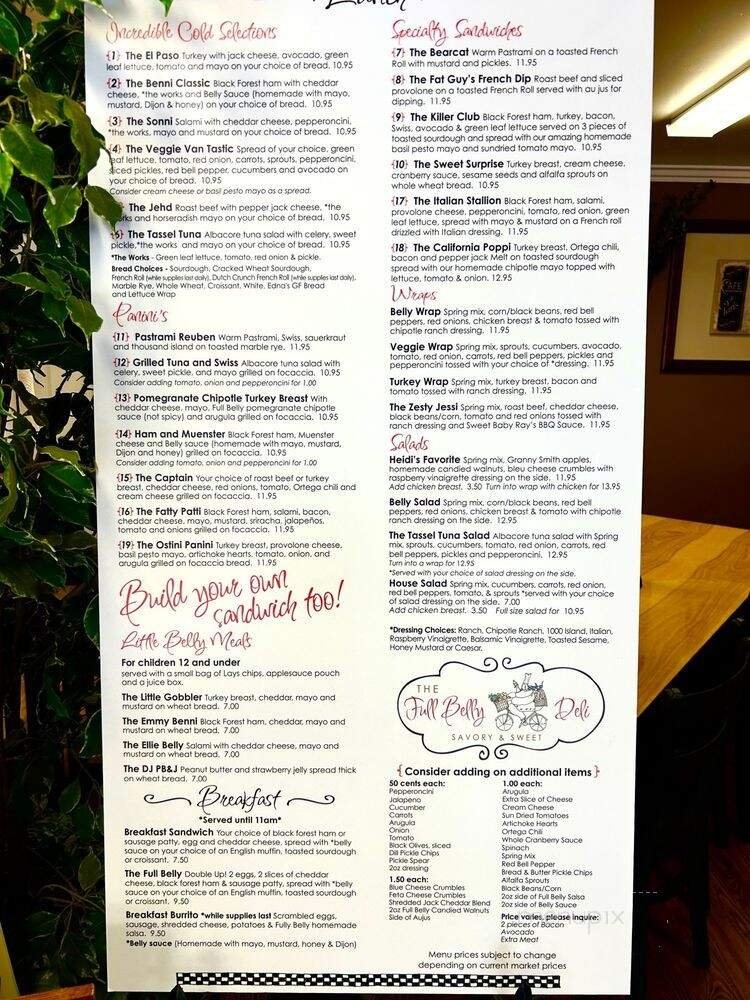 Lunch
Incredible Cold Selections
{1} The El Paso Turkey with jack cheese, avocado, green
leaf lettuce, tomato and mayo on your choice of bread. 10.95
{2} The Benni Classic Black Forest ham with cheddar
cheese, *the works and Belly Sauce (homemade with mayo,
mustard, Dijon & honey) on your choice of bread. 10.95
{3} The Sonni Salami with cheddar cheese, pepperoncini,
*the works, mayo and mustard on your choice of bread. 10.95
{4} The Veggie Van Tastic Spread of your choice, green
leaf lettuce, tomato, red onion, carrots, sprouts, pepperoncini,
sliced pickles, red bell pepper, cucumbers and avocado on
your choice of bread. 10.95
Consider cream cheese or basil pesto mayo as a spread.
The Jehd Roast beef with pepper jack cheese, *the
works and horseradish mayo on your choice of bread. 10.95
The Tassel Tuna Albacore tuna salad with celery, sweet
pickle,*the works and mayo on your choice of bread. 10.95
*The Works - Green leaf lettuce, tomato, red onion & pickle.
Bread Choices - Sourdough, Cracked Wheat Sourdough,
French Roll (while supplies last daily), Dutch Crunch French Roll (while supplies last daily),
Marble Rye, Whole Wheat, Croissant, White, Edna's GF Bread
and Lettuce Wrap
Panini's
{11} Pastrami Reuben Warm Pastrami, Swiss, sauerkraut
and thousand island on toasted marble rye. 11.95
{12} Grilled Tuna and Swiss Albacore tuna salad with
celery, sweet pickle, and mayo grilled on focaccia. 10.95
Consider adding tomato, onion and pepperoncini for 1.00
{13} Pomegranate Chipotle Turkey Breast With
cheddar cheese, mayo, Full Belly pomegranate chipotle
sauce (not spicy) and arugula grilled on focaccia. 10.95
{14} Ham and Muenster Black Forest ham, Muenster
cheese and Belly sauce (homemade with mayo, mustard,
Dijon and honey) grilled on focaccia. 10.95
Consider adding tomato, onion and pepperoncini for 1.00
{15} The Captain Your choice of roast beef or turkey
breast, cheddar cheese, red onions, tomato, Ortega chili and
cream cheese grilled on focaccia. 11.95
{16} The Fatty Patti Black Forest ham, salami, bacon,
cheddar cheese, mayo, mustard, sriracha, jalapeños,
tomato and onions grilled on focaccia. 11.95
{19} The Ostini Panini Turkey breast, provolone cheese,
basil pesto mayo, artichoke hearts, tomato, onion, and
arugula grilled on focaccia bread. 11.95
Build your own
sandwich too!
Little Belly Meals
For children 12 and under
served with a small bag of Lays chips, applesauce pouch
and a juice box.
The Little Gobbler Turkey breast, cheddar, mayo and
mustard on wheat bread. 7.00
The Emmy Benni Black Forest ham, cheddar, mayo and
mustard on wheat bread. 7.00
The Ellie Belly Salami with cheddar cheese, mayo and
mustard on wheat bread. 7.00
The DJ PB&J Peanut butter and strawberry jelly spread thick
on wheat bread. 7.00
Breakfast
*Served until 11am*
Breakfast Sandwich Your choice of black forest ham or
sausage patty, egg and cheddar cheese, spread with *belly
sauce on your choice of an English muffin, toasted sourdough
or croissant. 7.50
The Full Belly Double Up! 2 eggs, 2 slices of cheddar
cheese, black forest ham & sausage patty, spread with *belly
sauce on your choice of an English muffin, toasted sourdough
or croissant. 9.50
Breakfast Burrito *while supplies last Scrambled eggs,
sausage, shredded cheese, potatoes & Fully Belly homemade
salsa. 9.50
*Belly sauce (Homemade with mayo, mustard, honey & Dijon)
Specialty Sandwiches
{7} The Bearcat Warm Pastrami on a toasted French
Roll with mustard and pickles. 11.95
{8} The Fat Guy's French Dip Roast beef and sliced
provolone on a toasted French Roll served with au jus for
dipping. 11.95
{9} The Killer Club Black Forest ham, turkey, bacon,
Swiss, avocado & green leaf lettuce served on 3 pieces of
toasted sourdough and spread with our amazing homemade
basil pesto mayo and sundried tomato mayo. 10.95
{10} The Sweet Surprise Turkey breast, cream cheese,
cranberry sauce, sesame seeds and alfalfa sprouts on
whole wheat bread. 10.95
{17} The Italian Stallion Black Forest ham, salami,
provolone cheese, pepperoncini, tomato, red onion, green
leaf lettuce, spread with mayo & mustard on a French roll
drizzled with Italian dressing. 11.95
{18} The California Poppi Turkey breast, Ortega chili,
bacon and pepper jack Melt on toasted sourdough
spread with our homemade chipotle mayo topped with
lettuce, tomato & onion. 12.95
Wraps
Belly Wrap Spring mix, corn/black beans, red bell
peppers, red onions, chicken breast & tomato tossed with
chipotle ranch dressing. 11.95
Veggie Wrap Spring mix, sprouts, cucumbers, avocado,
tomato, red onion, carrots, red bell peppers, pickles and
pepperoncini tossed with your choice of *dressing. 11.95
Turkey Wrap Spring mix, turkey breast, bacon and
tomato tossed with ranch dressing. 11.95
The Zesty Jessi Spring mix, roast beef, cheddar cheese,
black beans/corn, tomato and red onions tossed with
ranch dressing and Sweet Baby Ray's BBQ Sauce. 11.95
Salads
Heidi's Favorite Spring mix, Granny Smith apples,
homemade candied walnuts, bleu cheese crumbles with
raspberry vinaigrette dressing on the side. 11.95
Add chicken breast. 3.50 Turn into wrap with chicken for 13.95
Belly Salad Spring mix, corn/black beans, red bell
peppers, red onions, chicken breast & tomato with chipotle
ranch dressing on the side. 12.95
The Tassel Tuna Salad Albacore tuna salad with Spring
mix, sprouts, cucumbers, tomato, red onion, carrots, red
bell peppers, pickles and pepperoncini. 12.95
Turn into a wrap for 12.95
*Served with your choice of salad dressing on the side.
House Salad Spring mix, cucumbers, carrots, red onion,
red bell peppers, tomato, & sprouts *served with your choice
of salad dressing on the side. 7.00
Add chicken breast. 3.50 Full size salad for 10.95
*Dressing Choices: Ranch, Chipotle Ranch, 1000 Island, Italian,
Raspberry Vinaigrette, Balsamic Vinaigrette, Toasted Sesame,
Honey Mustard or Caesar.
THE
Full Belly Deli
SAVORY & SWEET
{Consider adding on additional items}
50 cents each:
Pepperoncini
Jalapeno
Cucumber
Carrots
Arugula
Onion
Tomato
Black Olives, sliced
Dill Pickle Chips
Pickle Spear
2oz dressing
1.50 each:
Blue Cheese Crumbles
Feta Cheese Crumbles
Shredded Jack Cheddar Blend
2oz Full Belly Candied Walnuts
Side of Aujus
1.00 each:
Arugula
Extra Slice of Cheese
Cream Cheese
Sun Dried Tomatoes
Artichoke Hearts
Ortega Chili
Whole Cranberry Sauce
Spinach
Spring Mix
Red Bell Pepper
Bread & Butter Pickle Chips
Alfalfa Sprouts
Black Beans/Corn
2oz side of Full Belly Salsa
2oz side of Belly Sauce
Price varies, please inquire:
2 pieces of Bacon
Avocado
Extra Meat
Menu prices subject to change
depending on current market prices
CAFE